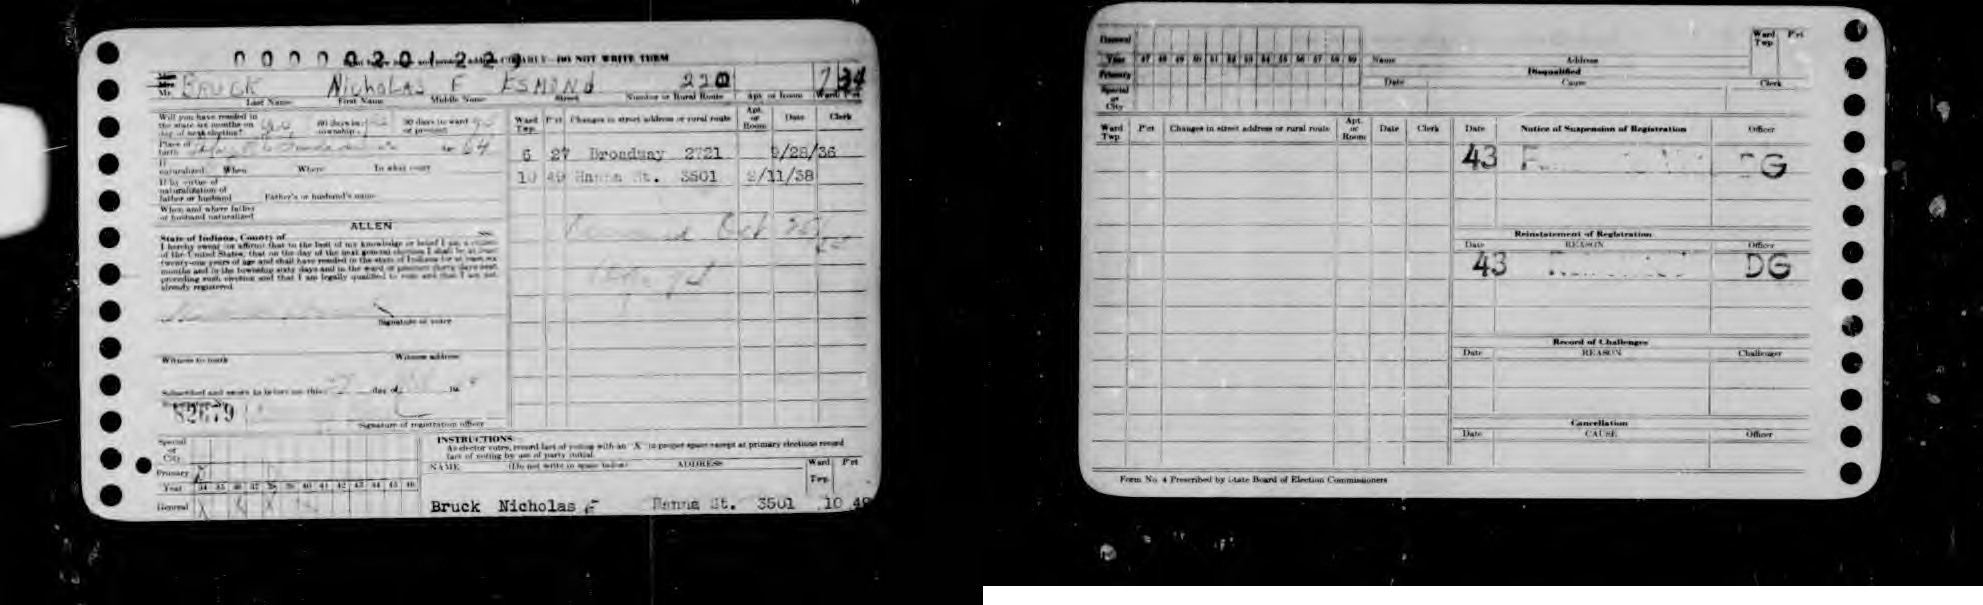 0 0 0 0 0 2 0 1 2 2 9 DO NOT WRITE THEM
Mr. BRUCK Nicholas F ESMOND 220 7 34
Last Name First Name Middle Name Street Number or Rural Route Apt. or Room Ward P'ct
Will you have resided in
the state six months on 60 days in 30 days in ward
day of next election? township or precinct
Place of
birth
If
naturalized When Where In what court
If by virtue of
naturalization of
father or husband Father's or husband's name
When and where father
or husband naturalized
ALLEN
State of Indiana, County of
I hereby swear (or affirm) that to the best of my knowledge or belief I am a citizen
of the United States, that on the day of the next general election I shall be at least
twenty-one years of age and shall have resided in the state of Indiana for at least six
months and in the township sixty days and in the ward or precinct thirty days next
preceding such election and that I am legally qualified to vote and that I am not
already registered.
Signature of voter
Witness to oath Witness address
Subscribed and sworn to before me this day of 19
82679
Signature of registration officer
Ward Twp. P'ct Changes in street address or rural route Apt. or Room Date Clerk
6 27 Broadway 2721 9/28/36
10 49 Hanna St. 3501 2/11/38
Oct
Special
or
City
Primary
Year 34 35 36 37 38 39 40 41 42 43 44 45 46
General X X X
INSTRUCTIONS
As elector votes, record fact of voting with an "X" in proper space except at primary elections record
fact of voting by use of party initial.
NAME (Do not write in space below) ADDRESS Ward Twp. P'ct
Bruck Nicholas F Hanna St. 3501 10 49
General
Year 47 48 49 50 51 52 53 54 55 56 57 58 59
Primary
Special
or
City
Name Address Ward Twp. P'ct
Disqualified
Date Cause Clerk
Ward Twp. P'ct Changes in street address or rural route Apt. or Room Date Clerk
Date Notice of Suspension of Registration Officer
43 DG
Reinstatement of Registration
Date REASON Officer
43 DG
Record of Challenges
Date REASON Challenger
Cancellation
Date CAUSE Officer
Form No. 4 Prescribed by State Board of Election Commissioners